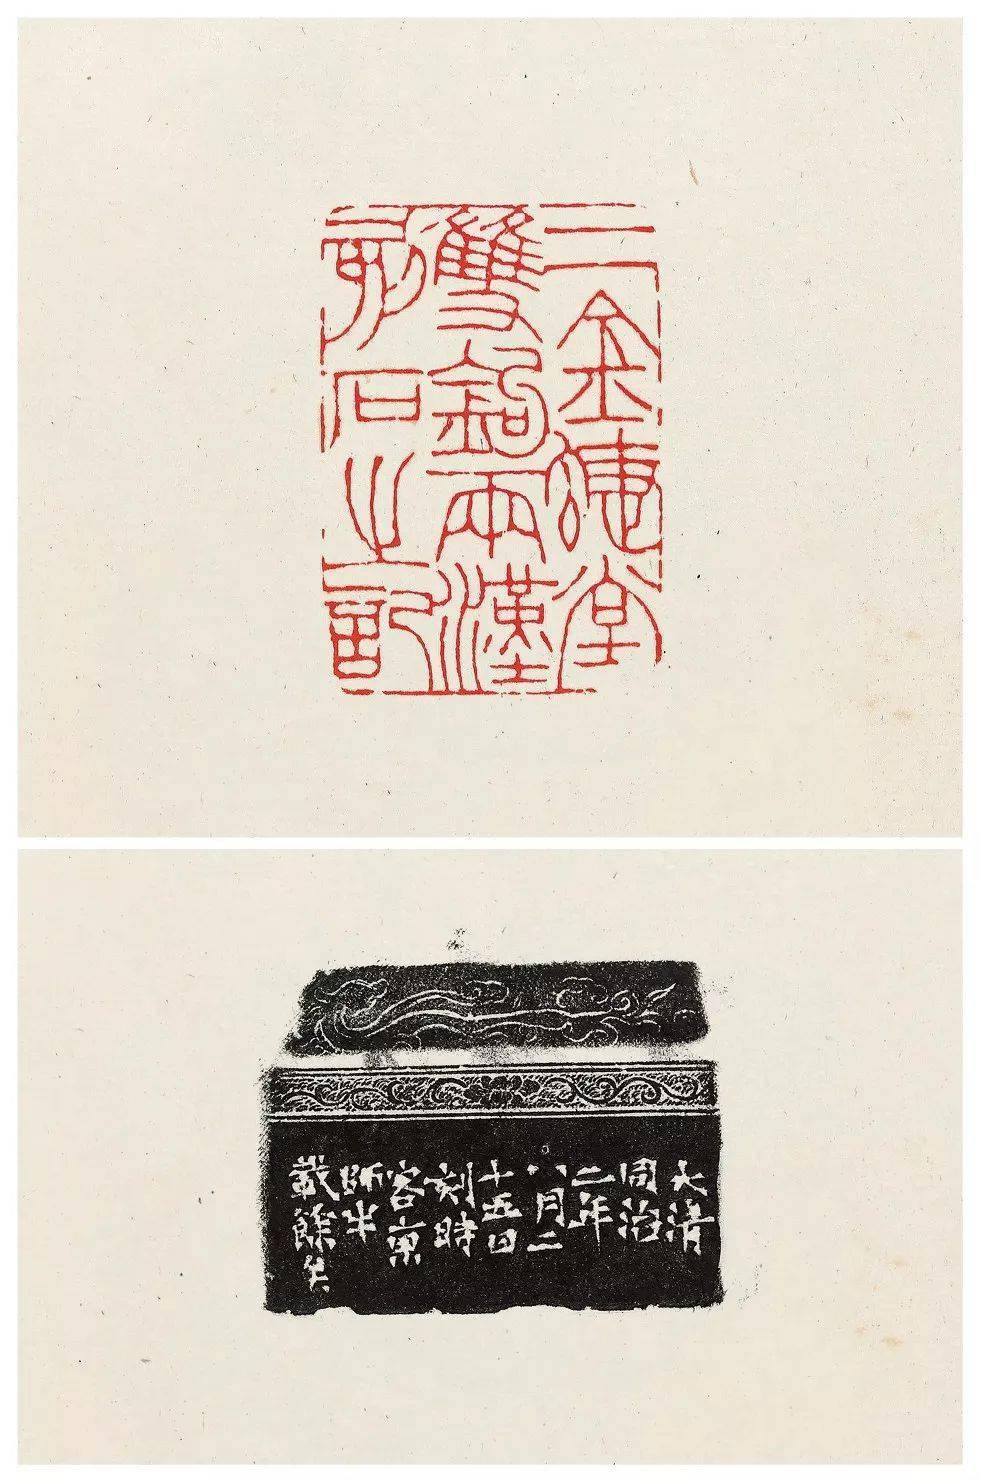 二金蜨堂
雙鉤兩漢
刻石之記
大清
同治
二年
八月二
十五日
刻時
客京
師半
載餘矣